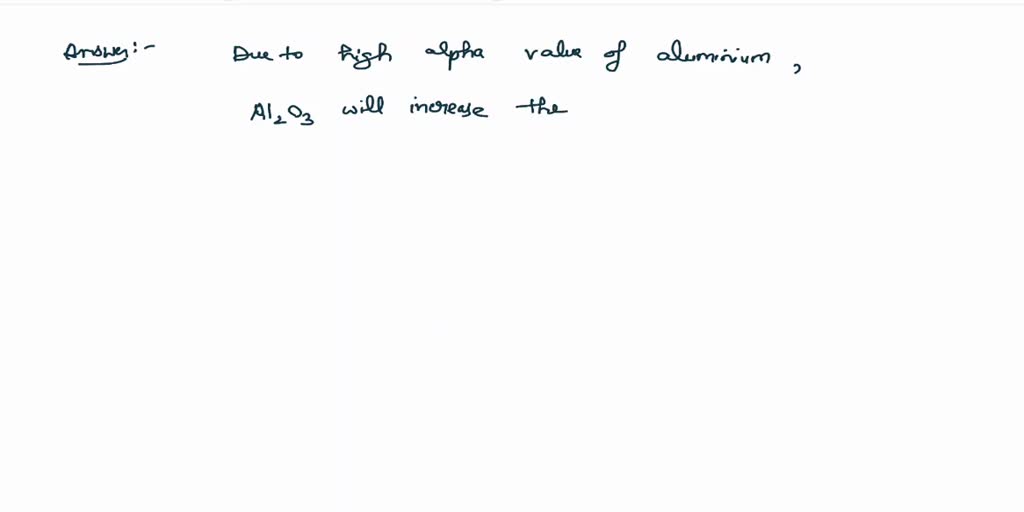 Answer:- Due to high alpha value of aluminium,
Al₂O₃ will increase the